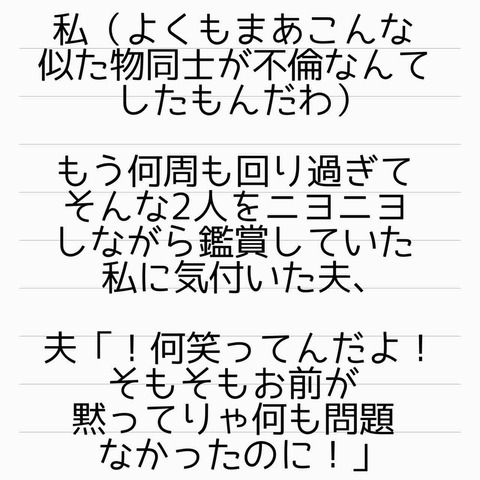 私（よくもまあこんな
似た物同士が不倫なんて
したもんだわ）
もう何周も回り過ぎて
そんな2人をニヨニヨ
しながら鑑賞していた
私に気付いた夫、
夫「！何笑ってんだよ！
そもそもお前が
黙ってりゃ何も問題
なかったのに！」